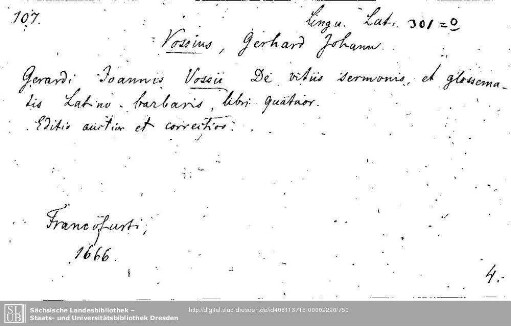 107. Lingu. Lat. 301 = 0
Vossius, Gerhard Johann
Gerardi Joannis Vossii De vitiis sermonis, et glossema-
tis Latino-barbaris, libri quatuor.
Editio auctior et correctior.
Francofurti,
1666.
4.
SLUB
Sächsische Landesbibliothek –
Staats- und Universitätsbibliothek Dresden